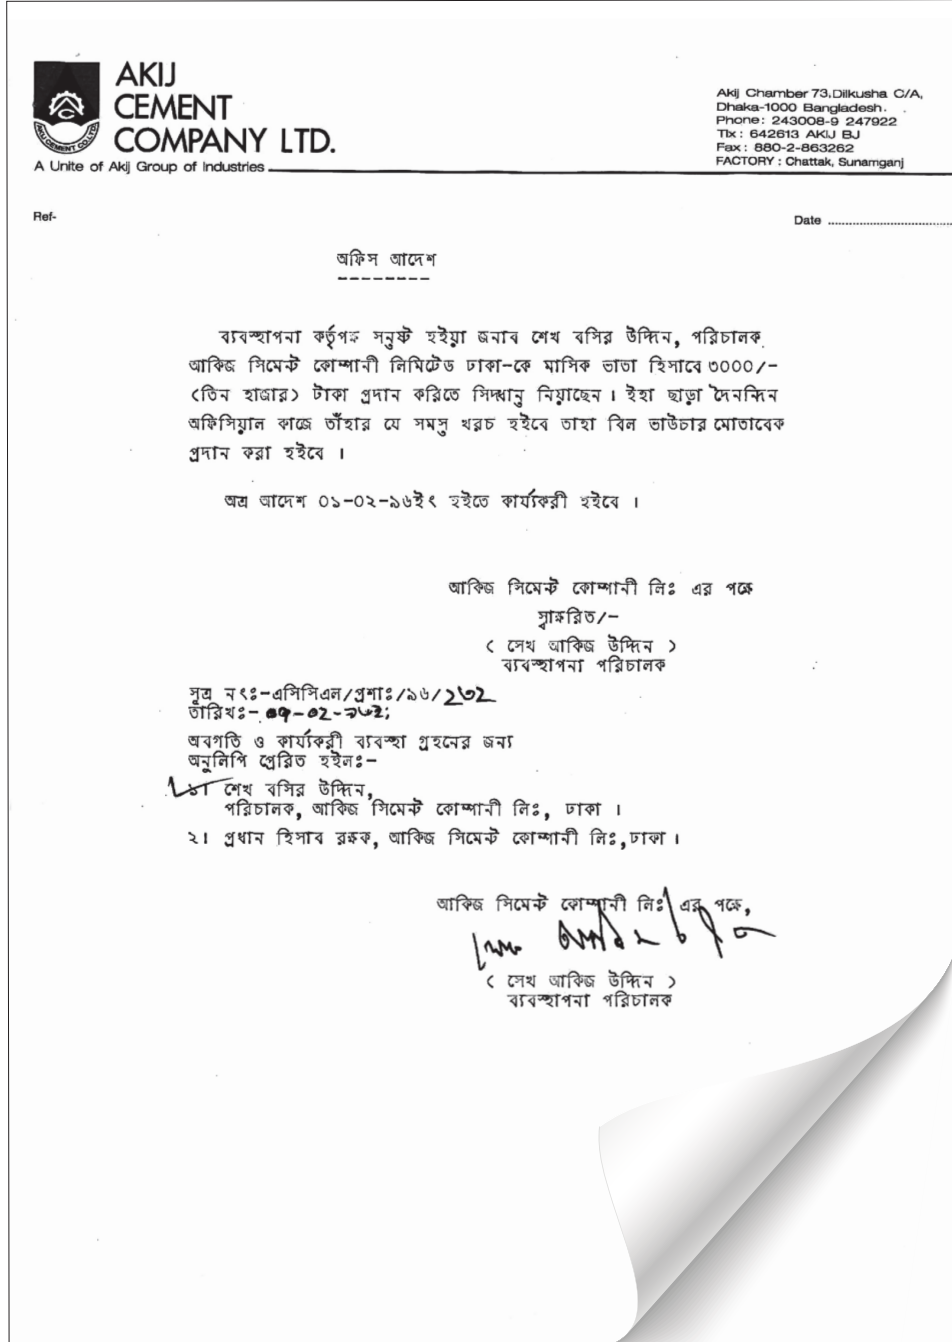 AKIJ
CEMENT
COMPANY LTD.
AKIJ CEMENT CO.LTD.
A Unite of Akij Group of Industries
Akij Chamber 73, Dilkusha C/A,
Dhaka-1000 Bangladesh.
Phone: 243008-9 247922
Tlx : 642613 AKIJ BJ
Fax : 880-2-863262
FACTORY : Chattak, Sunamganj
Ref-
Date ................................
অফিস আদেশ
--------
ব্যবস্থাপনা কর্তৃপক্ষ সন্তুষ্ট হইয়া জনাব শেখ বসির উদ্দিন, পরিচালক
আকিজ সিমেন্ট কোম্পানী লিমিটেড ঢাকা-কে মাসিক ভাতা হিসাবে ৩০০০/-
(তিন হাজার) টাকা প্রদান করিতে সিদ্ধান্ত নিয়াছেন । ইহা ছাড়া দৈনন্দিন
অফিসিয়াল কাজে তাঁহার যে সমস্ত খরচ হইবে তাহা বিল ভাউচার মোতাবেক
প্রদান করা হইবে ।
অত্র আদেশ ০১-০২-৯৬ইং হইতে কার্য্যকরী হইবে ।
আকিজ সিমেন্ট কোম্পানী লিঃ এর পক্ষে
স্বাক্ষরিত/-
( সেখ আকিজ উদ্দিন )
ব্যবস্থাপনা পরিচালক
সূত্র নং:-এসিসিএল/প্রশাঃ/৯৬/২৩২
তারিখঃ-
অবগতি ও কার্য্যকরী ব্যবস্থা গ্রহনের জন্য
অনুলিপি প্রেরিত হইলঃ-
১। শেখ বসির উদ্দিন,
পরিচালক, আকিজ সিমেন্ট কোম্পানী লিঃ, ঢাকা ।
২। প্রধান হিসাব রক্ষক, আকিজ সিমেন্ট কোম্পানী লিঃ,ঢাকা ।
আকিজ সিমেন্ট কোম্পানী লিঃ এর পক্ষে,
( সেখ আকিজ উদ্দিন )
ব্যবস্থাপনা পরিচালক